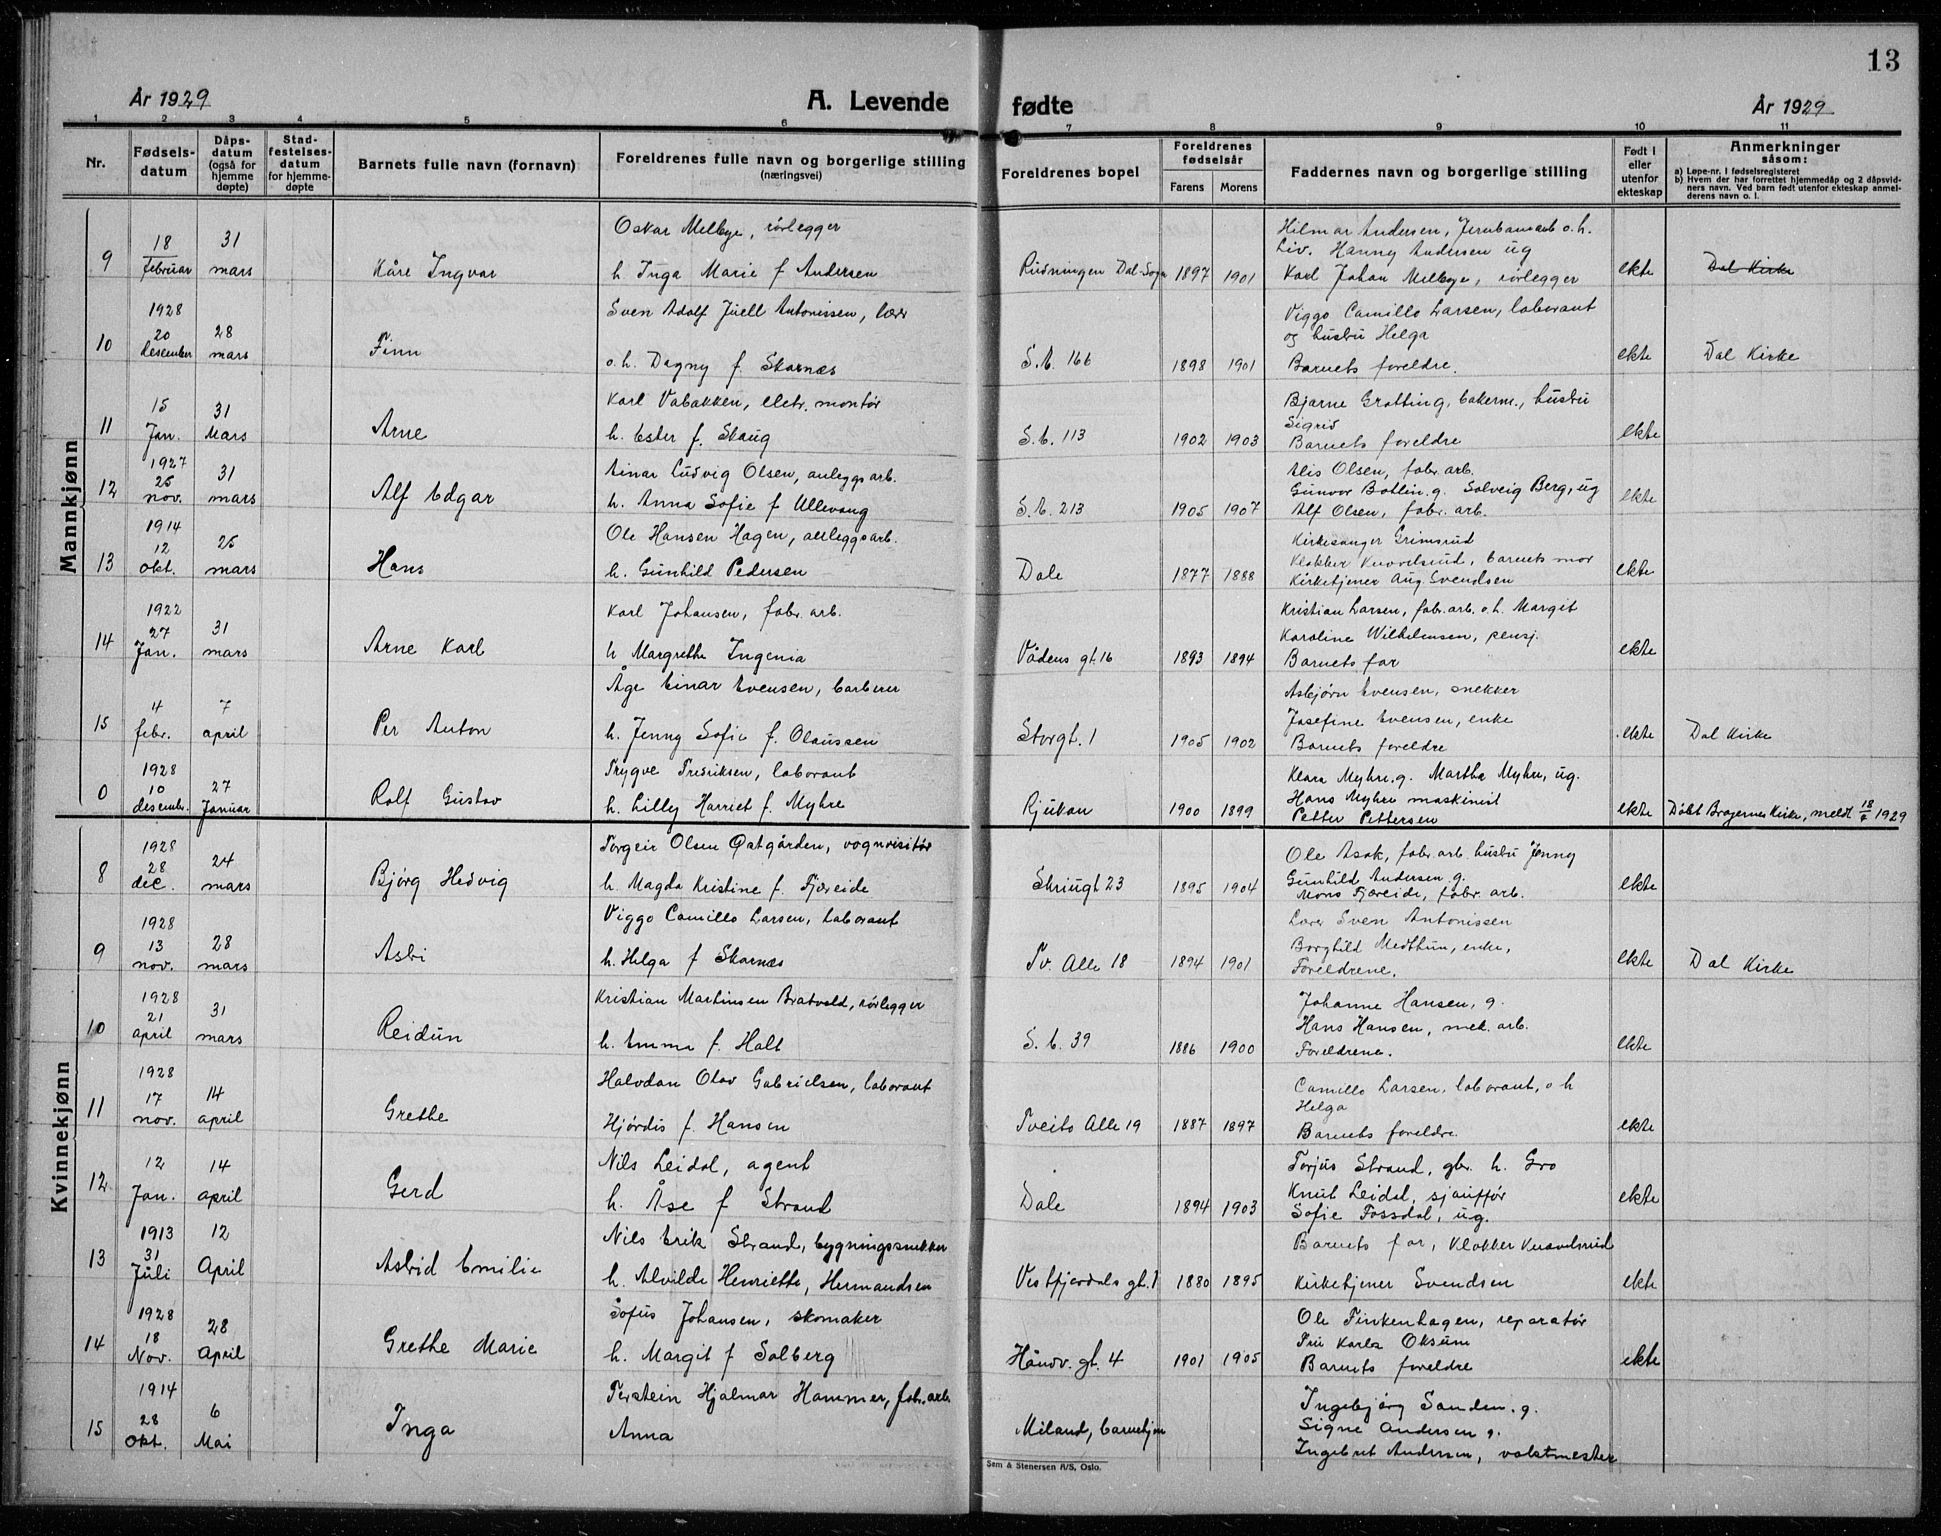 13
År 1929
A. Levende fødte
År 1929
1 2 3 4 5 6 7 8 9 10 11
Nr.
Fødselsdatum
Dåpsdatum (også for hjemme døpte)
Stadfestelsesdatum for hjemmedøpte
Barnets fulle navn (fornavn)
Foreldrenes fulle navn og borgerlige stilling (næringsvei)
Foreldrenes bopel
Foreldrenes fødselsår
Farens Morens
Faddernes navn og borgerlige stilling
Født i eller utenfor ekteskap
Anmerkninger såsom:
a) Løpe-nr. i fødselsregisteret
b) Hvem der har forrettet hjemmedåp og 2 dåpsvidners navn. Ved barn født utenfor ekteskap anmelderens navn o. l.
Mannkjønn
Oskar Melbye, rørlegger
Hilmar Andersen, Jernbanearb o.h.
Liv. Hanny Andersen ug
9 18 februar 31 mars Kåre Ingvar h. Inga Marie f Andersen Rudningen Dal-Sogn 1897 1901 Karl Johan Melbye, rørlegger ekte Dal Kirke
1928 Sven Adolf Juell Antonissen, lærer Viggo Camillo Larsen, laborant
og hustru Helga
10 20 desember 28 mars Finn o.h. Dagny f. Skarnæs S.b. 166 1898 1901 Barnets foreldre. ekte Dal Kirke
Karl Vabakken, elctr. montør Bjarne Grotting, bakerm., hustru
Sigrid
11 15 Jan. 31 Mars Arne h. Ester f. Skaug S.b. 113 1902 1903 Barnets foreldre ekte
1927 Einar Ludvig Olsen, anleggsarb. Alis Olsen, fabr. arb.
Gunvor Bottlin. g. Solveig Berg, ug
12 25 nov. 31 mars Alf Edgar h. Anna Sofie f Ullevang S.b. 213 1905 1907 Alf Olsen, fabr. arb. ekte
1914 Ole Hansen Hagen, anleggsarb. Kirkesanger Grimsrud
Klokker Knavelsrud, barnets mor
13 12 okt. 25 mars Hans h. Gunhild Pedersen Dale 1877 1888 Kirketjener Aug. Svendsen ekte
1922 Karl Johansen, fabr. arb. Kristian Larsen, fabr. arb. o.h. Margit
Karoline Wilhelmsen, pensj.
14 27 Jan. 31 mars Arne Karl h Margrethe Ingenia Vådens gt. 16 1893 1894 Barnets far ekte
Åge Einar Evensen, barberer Asbjørn Evensen, snekker
Josefine Evensen, enke
15 4 febr. 7 april Per Anton h. Jenny Sofie f. Olaussen Storgt. 1 1905 1902 Barnets foreldre ekte Dal Kirke
1928 Trygve Fredriksen, laborant Klara Myhre. g. Martha Myhre, ug.
Hans Myhre maskinist
0 10 desembr. 27 Januar Rolf Gustav h. Lilly Harriet f. Myhre Rjukan 1900 1899 Petter Pettersen ekte Døbt Bragernes Kirke, meldt 18/4 1929
Kvinnekjønn
1928 Torgeir Olsen Østgården, vognvisitør Ole Asak, fabr. arb. hustru Jenny
Gunhild Andersen g.
8 28 dec. 24 mars Bjørg Hedvig h. Magda Kristine f. Fjæreide Skriugt 23 1895 1904 Mons Fjæreide, fabr. arb. ekte
1928 Viggo Camillo Larsen, laborant Lærer Sven Antonissen
Borghild Medthun, enke,
9 13 nov. 28 mars Asbi h. Helga f Skarnæs Tv. Alle 18 1894 1901 Foreldrene. ekte Dal Kirke
1928 Kristian Martinsen Bratvold, rørlegger Johanne Hansen, g.
Hans Hansen, mek. arb.
10 21 april 31 mars Reidun h. Emma f. Holt S.b. 39 1886 1900 Foreldrene. ekte
1928 Halvdan Olav Gabrielsen, laborant Camillo Larsen, laborant, o h
Helga
11 17 nov. 14 april Grethe Hjørdis f. Hansen Tveito Alle 19 1887 1897 Barnets foreldre. ekte
Nils Leidal, agent Torjus Strand, gbr. h. Gro
Knut Leidal, sjauffør
12 12 Jan. 14 april Gerd h. Åse f Strand Dale 1894 1903 Sofie Fossdal, ug. ekte
1913 Nils Erik Strand, bygningssnekker Barnets far, Klokker Knavelsrud
13 31 Juli 12 April Astrid Emilie h. Alvilde Henriette, Hermandsen Vestfjordals gt. 1 1880 1895 Kirketjener Svendsen ekte
1928 Sofus Johansen, skomaker Ole Finkenhagen, reparatør
Fru Karla Oksum
14 18 Nov. 28 April Grethe Marie h. Margit f Solberg Håndv. gt. 4 1901 1905 Barnets foreldre ekte
1914 Torstein Hjalmar Hammer, fabr. arb. Ingebjørg Sanden. g.
15 28 Okt. 6 Mai Inga Anna Miland, barnehjem Signe Andersen g.
Ingebret Andersen, valsemester
Sem & Stenersen A/S, Oslo.